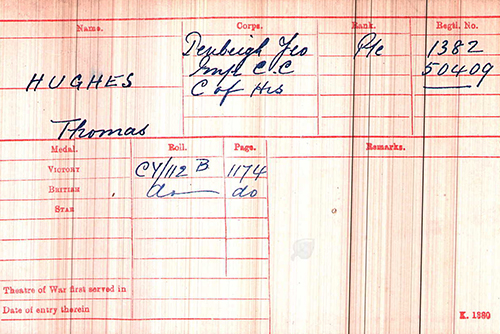 Name. Corps. Rank. Regtl. No.
Denbigh Yeo Pte 1382
HUGHES Imp C.C 50409
C of Hrs
Thomas
Medal. Roll. Page. Remarks.
VICTORY CY/112 B 1174
BRITISH do do
STAR
Theatre of War first served in
Date of entry therein
K. 1380